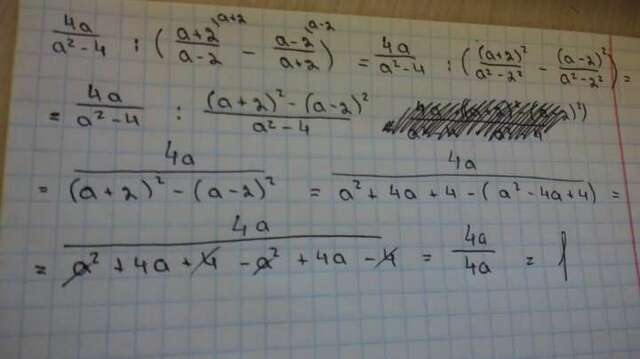 4a/(a²-4) : ((a+2)/(a-2) ^(a+2) - (a-2)/(a+2) ^(a-2)) = 4a/(a²-4) : ((a+2)²/(a²-2²) - (a-2)²/(a²-2²)) =
= 4a/(a²-4) : ((a+2)²-(a-2)²)/(a²-4)
= 4a/((a+2)²-(a-2)²) = 4a/(a²+4a+4-(a²-4a+4)) =
= 4a/(a²+4a+4-a²+4a-4) = 4a/4a = 1